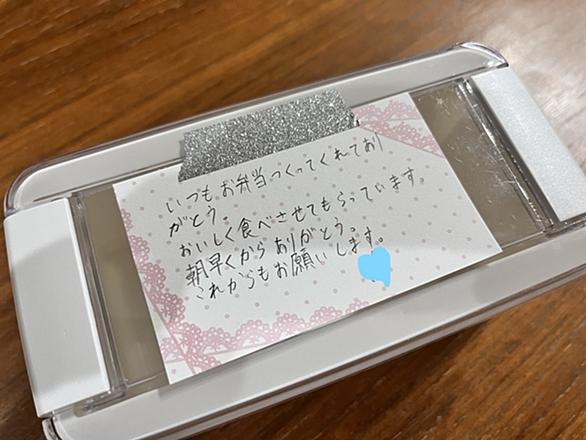 いつもお弁当つくってくれてあり
がとう。
おいしく食べさせてもらっています。
朝早くからありがとう。
これからもお願いします。